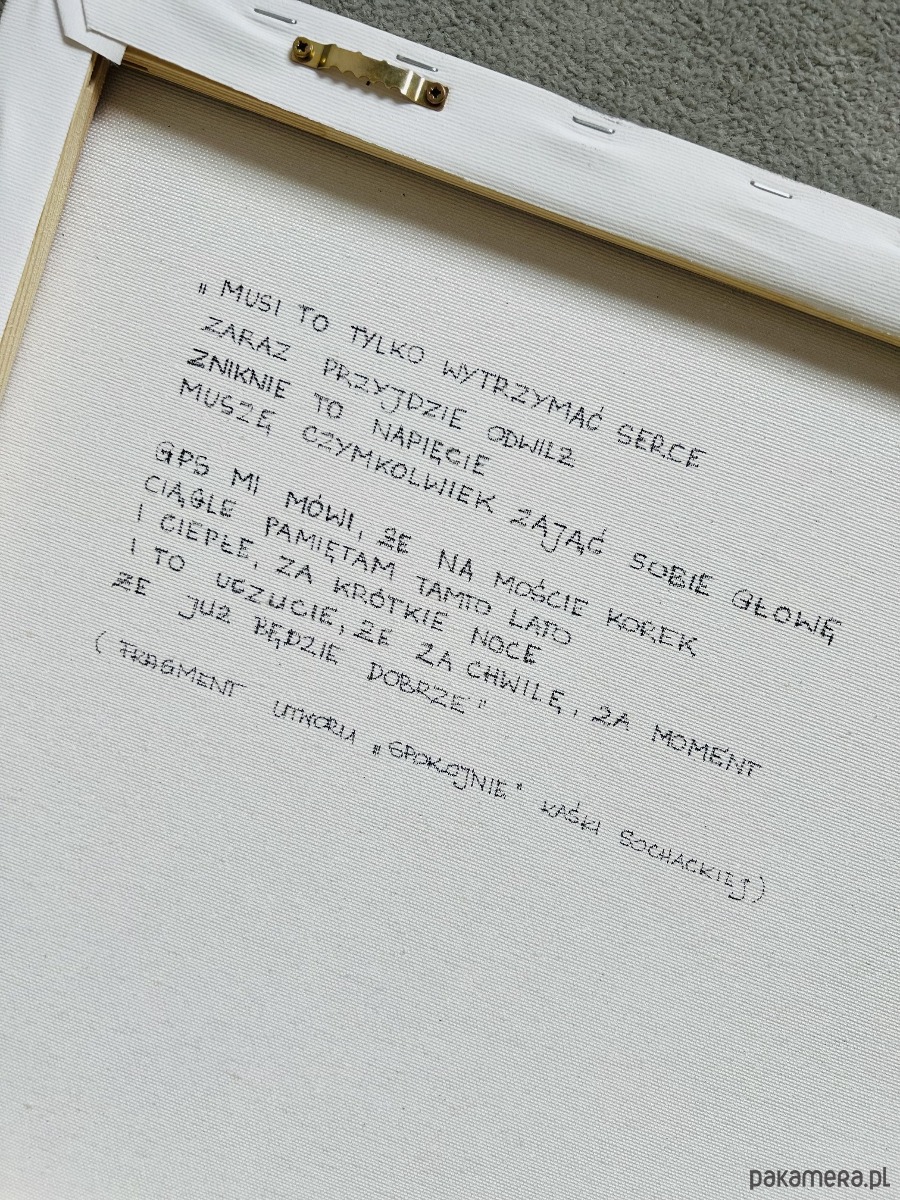 „MUSI TO TYLKO WYTRZYMAĆ SERCE
ZARAZ PRZYJDZIE ODWILŻ
ZNIKNIE TO NAPIĘCIE
MUSZĘ CZYMKOLWIEK ZAJĄĆ SOBIE GŁOWĘ
GPS MI MÓWI, ŻE NA MOŚCIE KOREK
CIĄGLE PAMIĘTAM TAMTO LATO
I CIEPŁE, ZA KRÓTKIE NOCE
I TO UCZUCIE, ŻE ZA CHWILĘ, ZA MOMENT
ŻE JUŻ BĘDZIE DOBRZE"
(FRAGMENT UTWORU „SPOKOJNIE" KAŚKI SOCHACKIEJ)
pakamera.pl